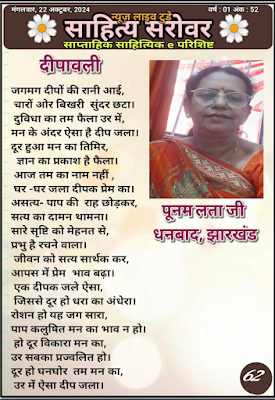 मंगलवार, 22 अक्टूबर, 2024
न्यूज़ लाइव टुडे
वर्ष : 01 अंक : 52
साहित्य सरोवर
साप्ताहिक साहित्यिक e परिशिष्ट
दीपावली
जगमग दीपों की रानी आई,
चारों ओर बिखरी सुंदर छटा।
दुविधा का तम फैला उर में,
मन के अंदर ऐसा है दीप जला।
दूर हुआ मन का तिमिर,
ज्ञान का प्रकाश है फैला।
आज तम का नाम नहीं ,
घर -घर जला दीपक प्रेम का।
असत्य- पाप की राह छोड़कर,
सत्य का दामन थामना।
सारे सृष्टि को मेहनत से,
प्रभु है रचने वाला।
जीवन को सत्य सार्थक कर,
आपस में प्रेम भाव बढ़ा।
एक दीपक जले ऐसा,
जिससे दूर हो धरा का अंधेरा।
रोशन हो यह जग सारा,
पाप कलुषित मन का भाव न हो।
हो दूर विकारा मन का,
उर सबका प्रज्वलित हो।
दूर हो घनघोर तम मन का,
उर में ऐसा दीप जला।
पूनम लता जी
धनबाद, झारखंड
62